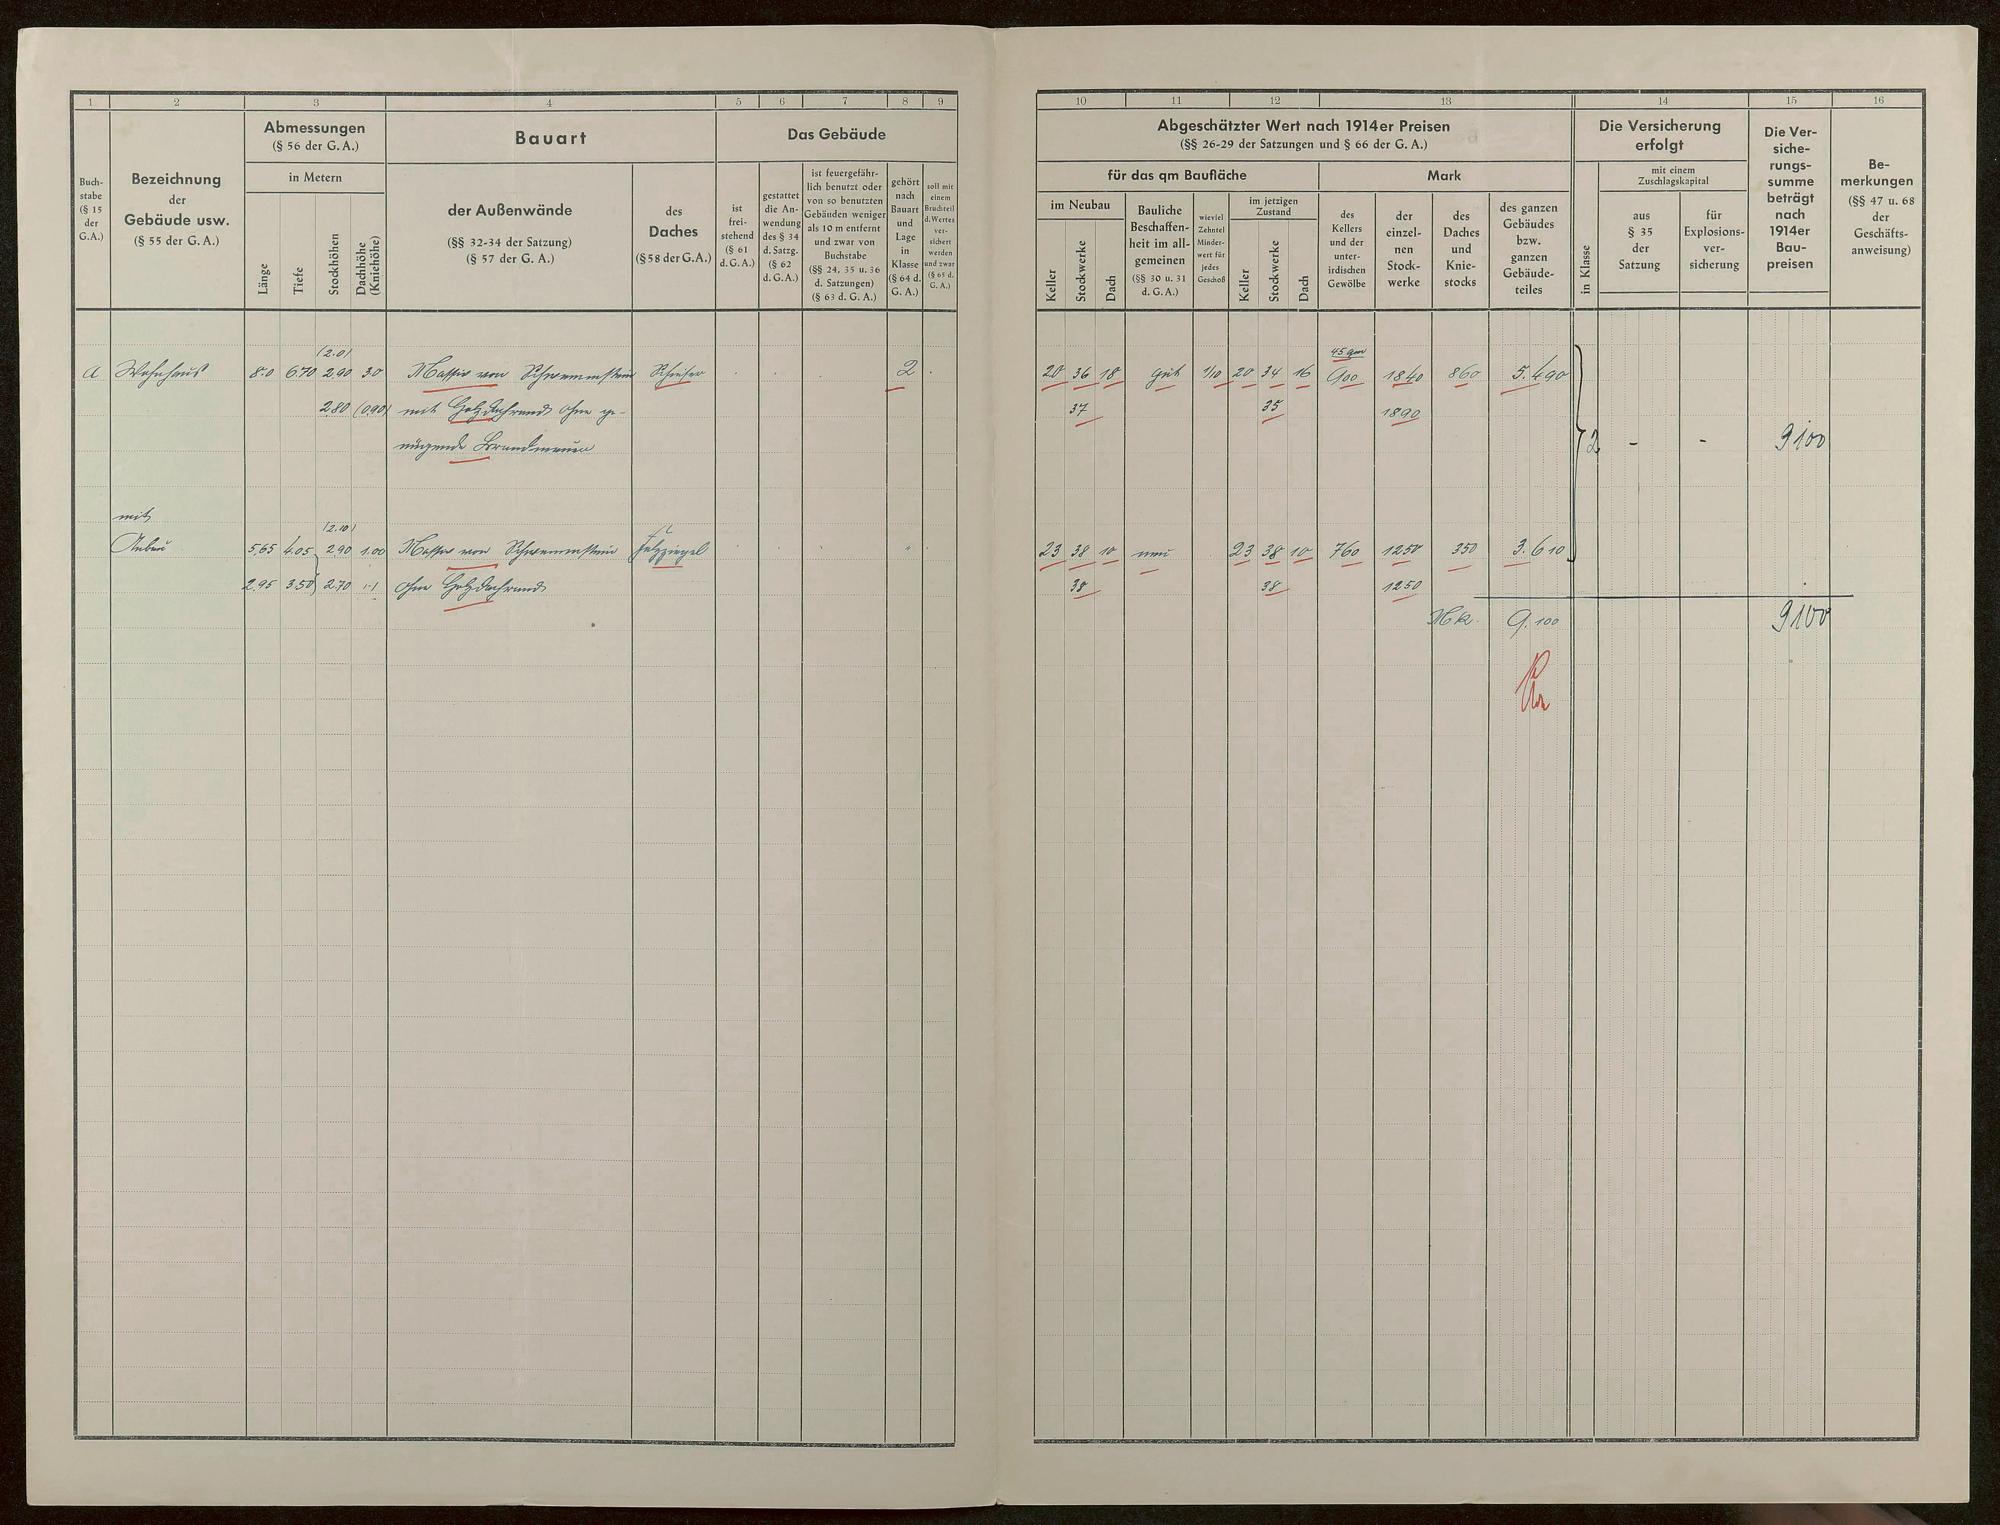 1 2 3 4 5 6 7 8 9
Buch-
stabe
(§ 15
der
G.A.)
Bezeichnung
der
Gebäude usw.
(§ 55 der G. A.)
Abmessungen
(§ 56 der G. A.)
in Metern
Länge
Tiefe
Stockhöhen
Dachhöhe
(Kniehöhe)
Bauart
der Außenwände
(§§ 32-34 der Satzung)
(§ 57 der G. A.)
des
Daches
(§ 58 der G. A.)
Das Gebäude
ist
frei-
stehend
(§ 61
d. G. A.)
gestattet
die An-
wendung
des § 34
d. Satzg.
(§ 62
d. G. A.)
ist feuergefähr-
lich benutzt oder
von so benutzten
Gebäuden weniger
als 10 m entfernt
und zwar von
Buchstabe
(§§ 24, 35 u. 36
d. Satzungen)
(§ 63 d. G. A.)
gehört
nach
Bauart
und
Lage
in
Klasse
(§ 64 d.
G. A.)
soll mit
einem
Bruchteil
d. Wertes
ver-
sichert
werden
und zwar
(§ 65 d.
G. A.)
(2.0)
a Wohnhaus 8.0 6.70 2.90 3.0 Massiv von Schwemmstein Schiefer 2
2.80 (0.90) mit Holzdachrand ohne ge-
nügende Brandmauer
mit
(2.10)
Anbau 5,65 4.05 2.90 1.00 Massiv von Schwemmstein Falzziegel "
2,95 3.50 2.70 ohne Holzdachrand
10 11 12 13 14 15 16
Abgeschätzter Wert nach 1914er Preisen
(§§ 26-29 der Satzungen und § 66 der G. A.)
für das qm Baufläche
Mark
im Neubau
Keller
Stockwerke
Dach
Bauliche
Beschaffen-
heit im all-
gemeinen
(§§ 30 u. 31
d. G. A.)
wieviel
Zehntel
Minder-
wert für
jedes
Geschoß
im jetzigen
Zustand
Keller
Stockwerke
Dach
des
Kellers
und der
unter-
irdischen
Gewölbe
der
einzel-
nen
Stock-
werke
des
Daches
und
Knie-
stocks
des ganzen
Gebäudes
bzw.
ganzen
Gebäude-
teiles
Die Versicherung
erfolgt
in Klasse
mit einem
Zuschlagskapital
aus
§ 35
der
Satzung
für
Explosions-
ver-
sicherung
Die Ver-
siche-
rungs-
summe
beträgt
nach
1914er
Bau-
preisen
Be-
merkungen
(§§ 47 u. 68
der
Geschäfts-
anweisung)
45 qm
20 36 18 gut 1/10 20 34 16 900 1840 860 5.490
37 35 1890
2 - - 9100
23 38 10 neu 23 38 10 760 1250 350 3.610
38 38 1250
Mk. 9.100 9100